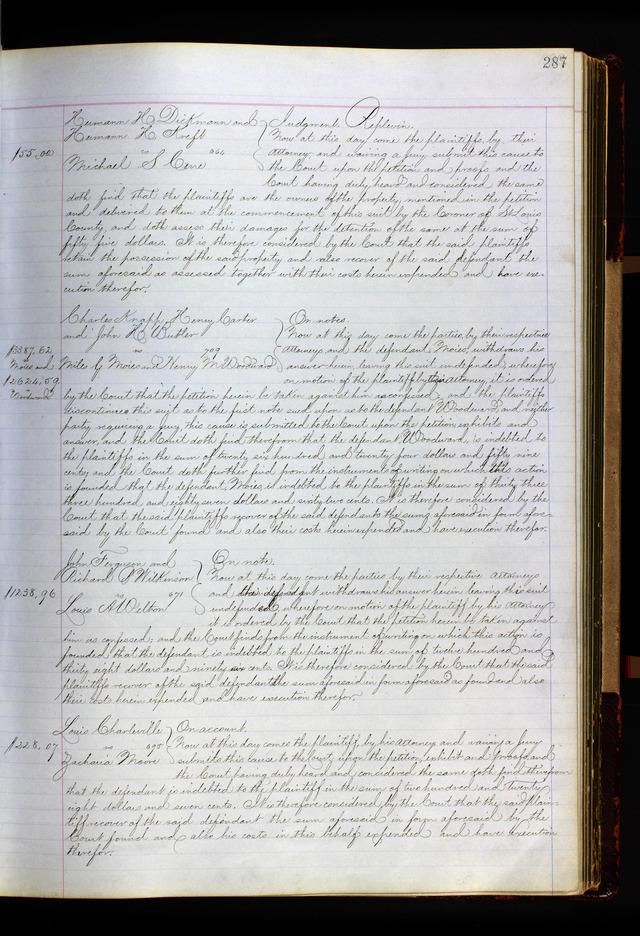 287
Hermann H. Dickmann and } Judgment Replevin.
Hermann H. Kreft } Now at this day come the plaintiffs, by their
$55.00 vs 964 } attorney, and waiving a jury submit this cause to
Michael S. Cerre } the Court upon the petition and proofs and the
Court having duly heard and considered the same
doth find that the plaintiffs are the owners of the property mentioned in the petition
and delivered to them at the commencement of this suit by the Coroner of St. Louis
County, and doth assess their damages for the detention of the same at the sum of
fifty five dollars. It is therefore considered by the Court that the said plaintiffs
retain the possession of the said property and also recover of the said defendant the
sum aforesaid as assessed together with their costs herein expended and have exe-
cution therefor.
Charles Knapp, Henry Carter } On notes.
and John H. Butler } Now at this day come the parties, by their respective
$3387.62 vs 709 } attorneys and the defendant, Moies, withdraws his
Moies and Miles G. Moies and Henry M. Woodward } answer herein leaving this suit undefended; wherefore
$2624.59 Woodward on motion of the plaintiff by their attorney, it is ordered
by the Court that the petition herein be taken against him as confessed; and the plaintiffs
discontinues this suit as to the first note sued upon as to the defendant Woodward, and neither
party requiring a jury, this cause is submitted to the Court upon the petition, exhibits and
answer, and the Court doth find therefrom that the defendant, Woodward, is indebted to
the plaintiffs in the sum of twenty six hundred and twenty four dollars and fifty nine
cents, and the Court doth further find from the instruments of writing on which this action
is founded that the defendant, Moies, is indebted to the plaintiffs in the sum of thirty three
three hundred and eighty seven dollars and sixty two cents. It is therefore considered by the
Court that the said plaintiffs recover of the said defendants the sums aforesaid in form afore-
said by the Court found and also their costs herein expended and have execution therefor.
John Ferguson and } On note.
Richard P. Wilkinson } Now at this day come the parties by their respective attorneys
$1238.96 vs 671 } and the defendant withdraws his answer herein leaving this suit
Louis A. Welton } undefended, wherefore on motion of the plaintiff by his attorney
it is ordered by the Court that the petition herein be taken against
him as confessed; and the Court finds from the instrument of writing on which this action is
founded that the defendant is indebted to the plaintiffs in the sum of twelve hundred and
thirty eight dollars and ninety six cents. It is therefore considered by the Court that the said
plaintiffs recover of the said defendant the sum aforesaid in form aforesaid as found and also
their costs herein expended and have execution therefor.
Louis Charleville } On account.
$228.07 vs 690 } Now at this day comes the plaintiff by his attorney and waiving a jury
Zacharia Moore } submits this cause to the Court upon the petition, exhibit and proofs and
the Court having duly heard and considered the same doth find therefrom
that the defendant is indebted to the plaintiff in the sum of two hundred and twenty
eight dollars and seven cents. It is therefore considered by the Court that the said plain-
tiff recover of the said defendant the sum aforesaid in form aforesaid by the
Court found and also his costs in this behalf expended and have execution
therefor.